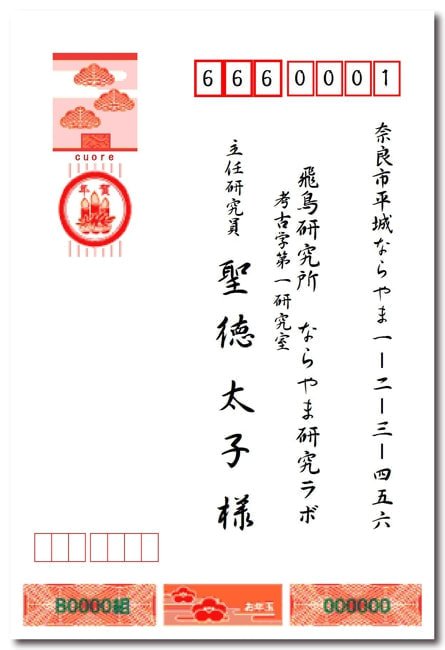 6660001
奈良市平城ならやま一ー二ー三ー四五六
飛鳥研究所　ならやま研究ラボ
考古学第一研究室
主任研究員
聖徳太子様
cuore
年賀
B0000組
お年玉
000000